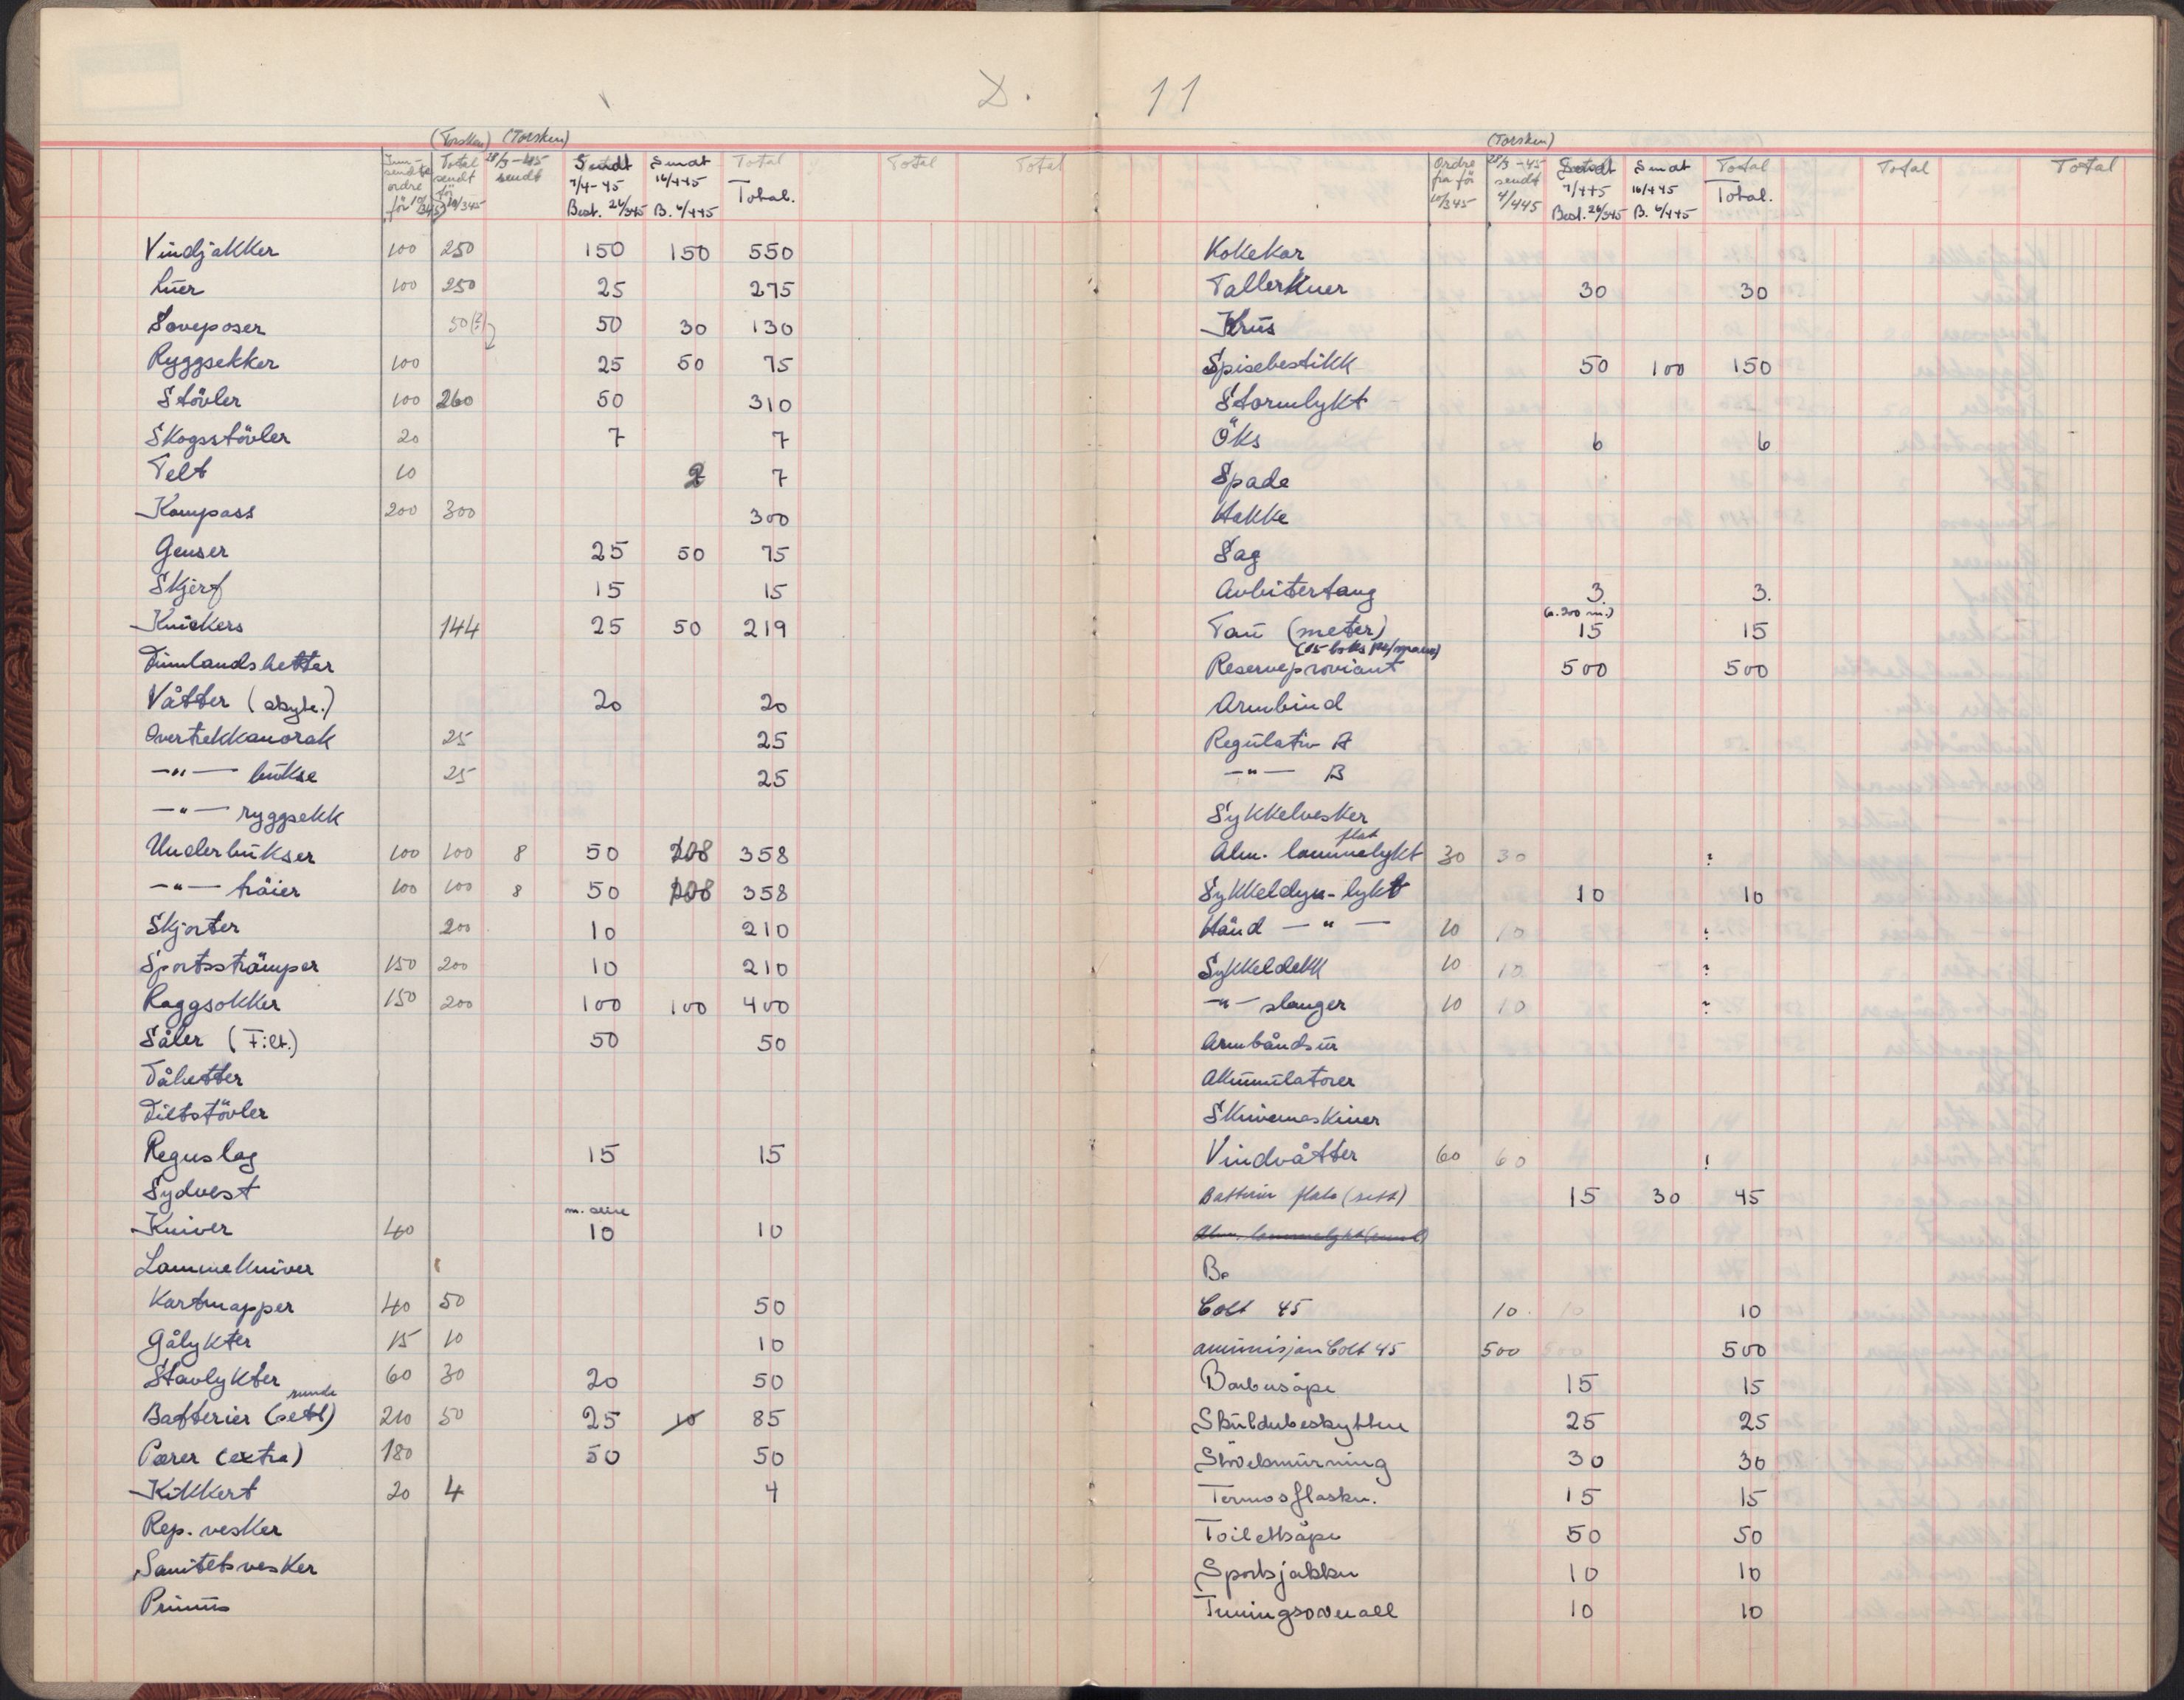 D. 11
(Torsken) (Torsken)
Innsendte ordre før 10/3 45 Total sendt før 10/3 45 28/3-45 sendt Sendt 7/4-45 Best. 26/3 45 Sendt 16/4 45 B. 6/4 45 Total Total. Total Total
Vindjakker 100 250 150 150 550
Luer 100 250 25 275
Soveposer 50(?) 50 30 130
Ryggsekker 100 25 50 75
Støvler 100 260 50 310
Skogsstøvler 20 7 7
Telt 10 2 7
Kompass 200 300 300
Genser 25 50 75
Skjerf 15 15
Knickers 144 25 50 219
Finnlandshetter
Våtter (skyte.) 20 20
Overtrekkanorak 25 25
—"— bukse 25 25
—"— ryggsekk
Underbukser 100 100 8 50 208 358
—"— trøier 100 100 8 50 208 358
Skjorter 200 10 210
Sportsstrømper 150 200 10 210
Raggsokker 150 200 100 100 400
Såler (Filt.) 50 50
Tåhetter
Filtstøvler
Regnslag 15 15
Sydvest
m. slire
Kniver 40 10 10
Lommekniver
Kartmapper 40 50 50
Gålykter 15 10 10
Stavlykter 60 30 20 50
runde
Batterier (sett) 210 50 25 10 85
Pærer (extra) 180 50 50
Kikkert 20 4 4
Rep. vesker
Sanitetsvesker
Primus
(Torsken)
Ordre fra før 10/3 45 28/3-45 sendt 4/4 45 Sendt 7/4 45 Best. 26/3 45 Sendt 16/4 45 B. 6/4 45 Total Total. Total Total
Kokekar
Tallerkner 30 30
Krus
Spisebestikk 50 100 150
Stormlykt
Øks 6 6
Spade
Hakke
Sag
Avbitertang 3. 3.
(a. 200 m.)
Tau (meter) 15 15
Reserveproviant 500 500
Armbind
Regulativ A
—"— B
Sykkelvesker
flat
Alm. lommelykt 30 30 :
Sykkeldyn-lykt 10 10
Hånd —"— 10 10 :
Sykkeldekk 10 10 :
—"— slanger 10 10 :
Armbåndsur
Akumulatorer
Skrivemaskiner
Vindvåtter 60 60 !
Batterier flate (sett) 15 30 45
Alm. lommelykt (rund)
B.
Colt 45 10 10 10
ammunisjon Colt 45 500 500 500
Barbersåpe 15 15
Skulderbeskyttere 25 25
Støvelsmurning 30 30
Termosflasker. 15 15
Toilettsåpe 50 50
Sportsjakker 10 10
Treningsoverall 10 10